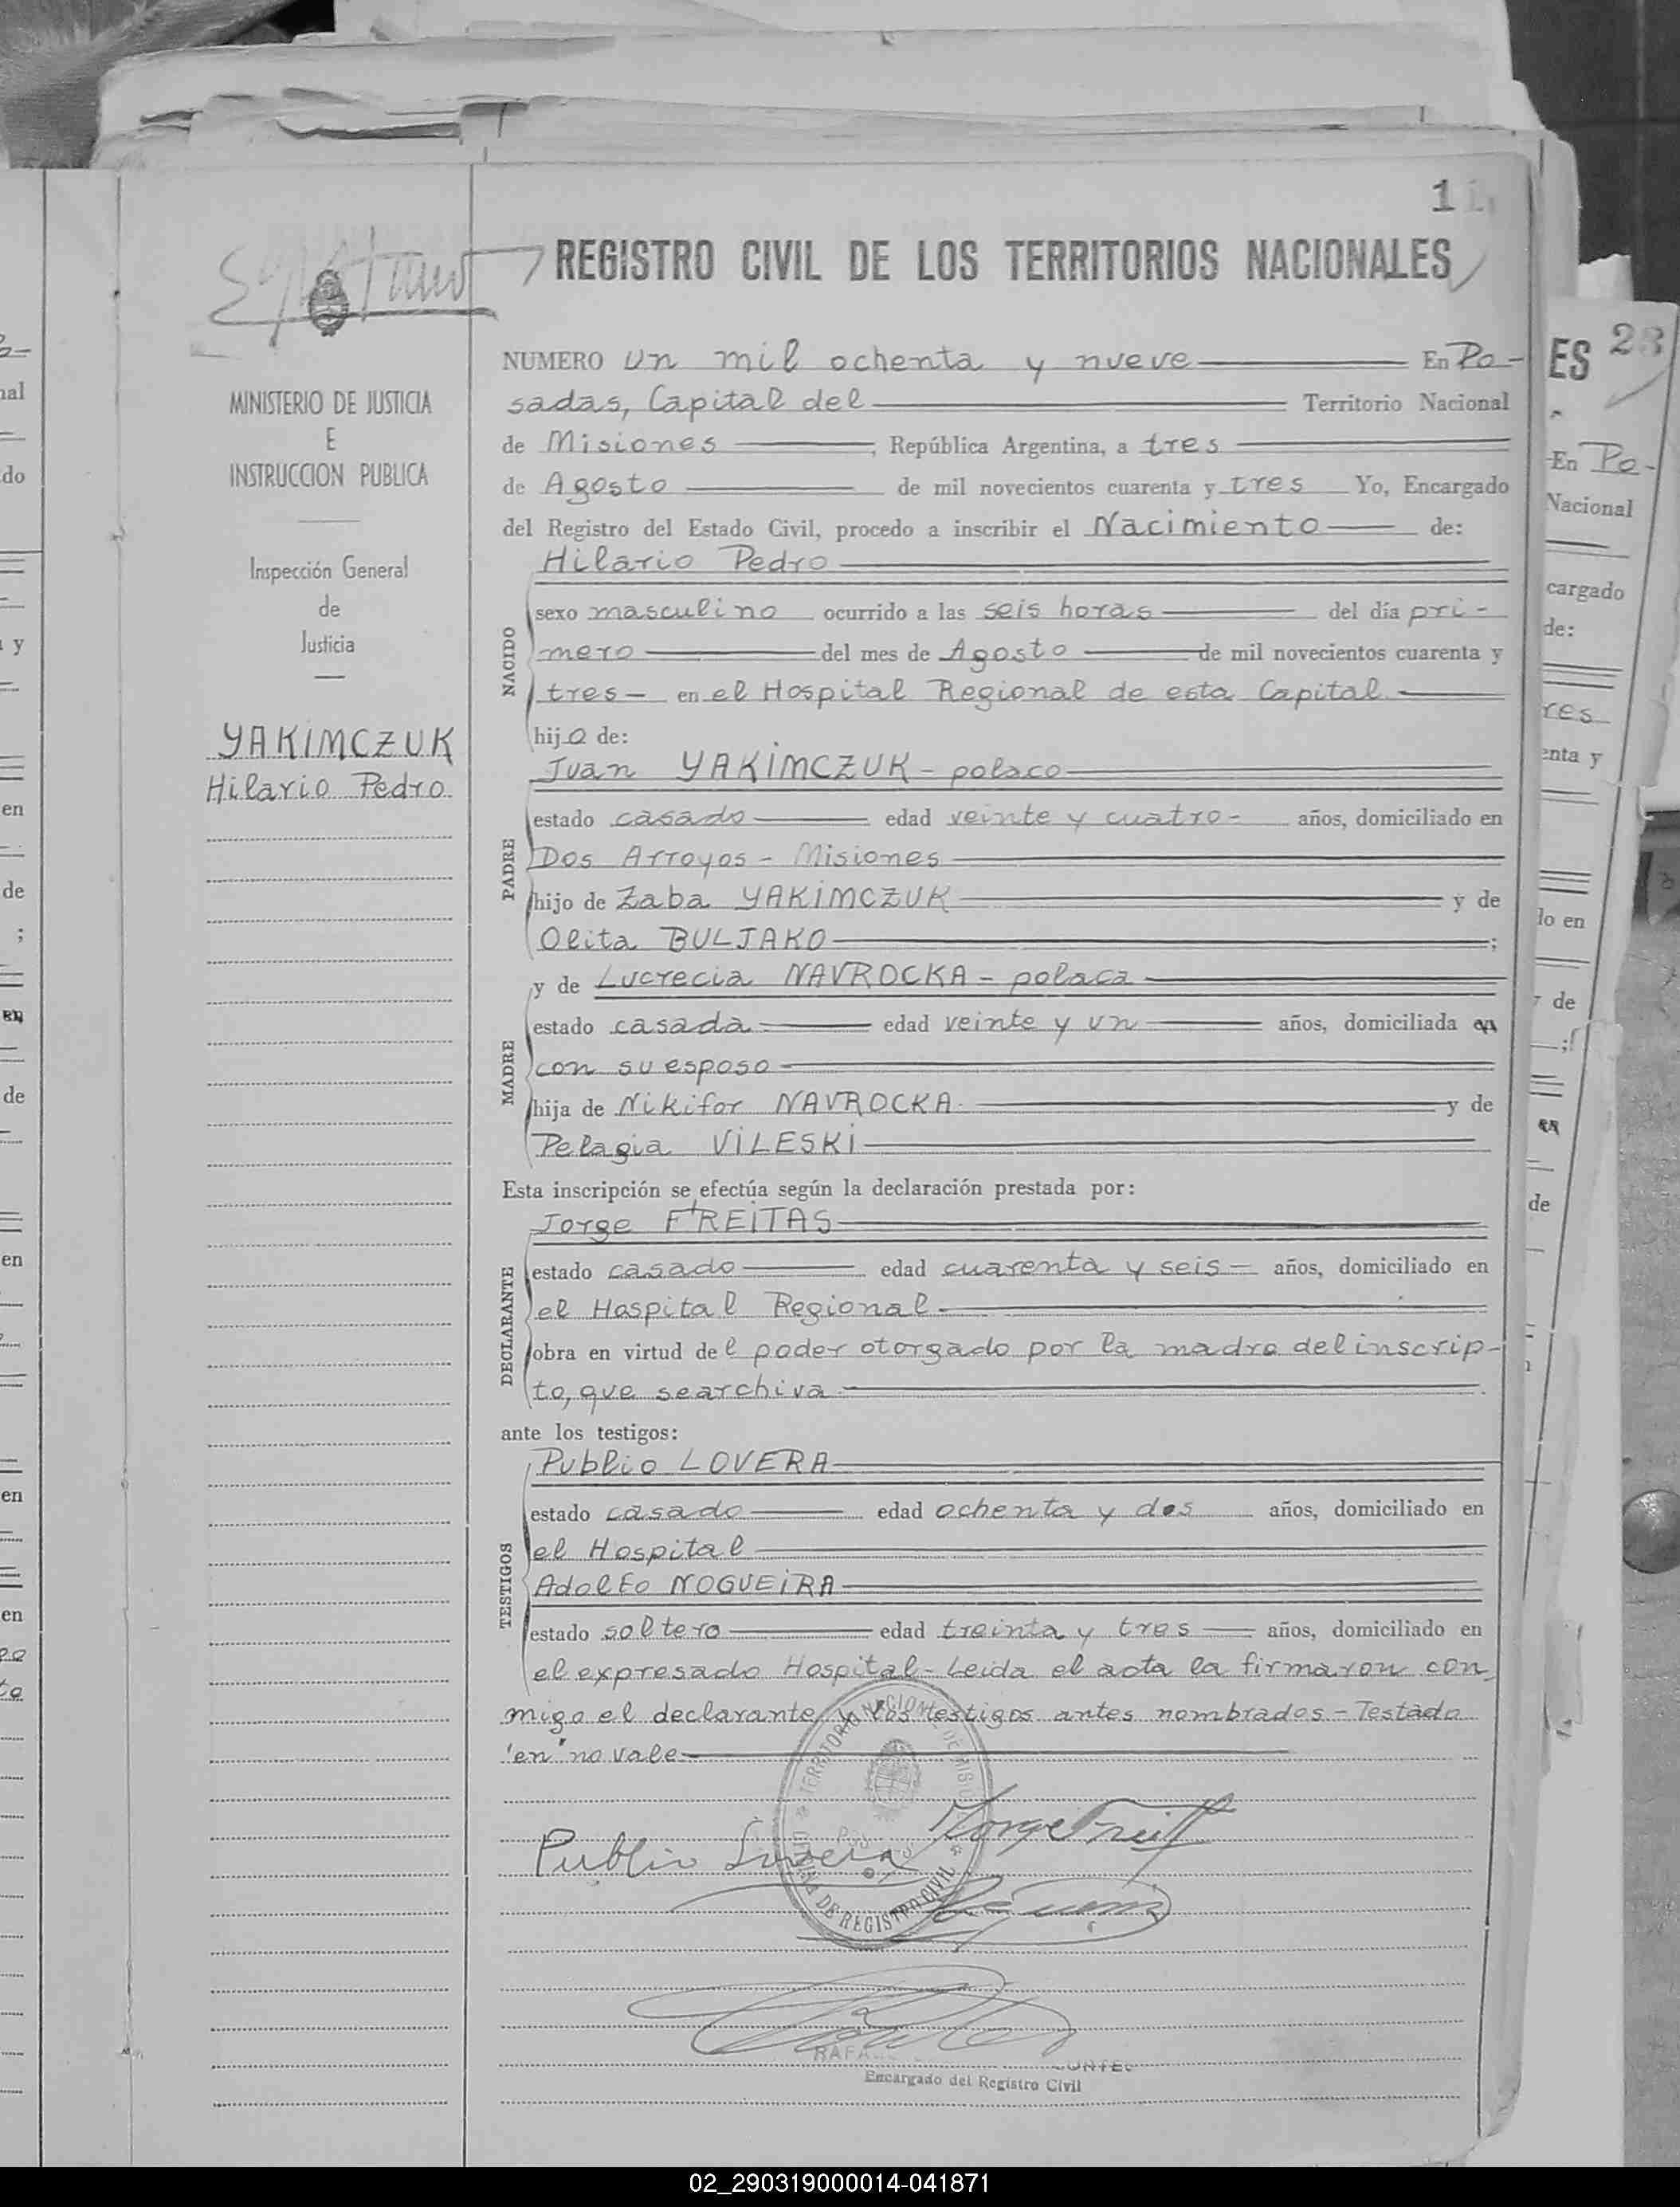 1
REGISTRO CIVIL DE LOS TERRITORIOS NACIONALES
MINISTERIO DE JUSTICIA
E
INSTRUCCION PUBLICA
Inspección General
de
Justicia
YAKIMCZUK
Hilario Pedro
NUMERO un mil ochenta y nueve En Po-
sadas, Capital del Territorio Nacional
de Misiones, República Argentina, a tres
de Agosto de mil novecientos cuarenta y tres Yo, Encargado
del Registro del Estado Civil, procedo a inscribir el Nacimiento de:
NACIDO
Hilario Pedro
sexo masculino ocurrido a las seis horas del día pri-
mero del mes de Agosto de mil novecientos cuarenta y
tres - en el Hospital Regional de esta Capital.
hijo de:
PADRE
Juan YAKIMCZUK - polaco
estado casado edad veinte y cuatro - años, domiciliado en
Dos Arroyos - Misiones
hijo de Zaba YAKIMCZUK y de
Olita BULJAKO;
MADRE
y de Lucrecia NAVROCKA - polaca
estado casada edad veinte y un años, domiciliada en
con su esposo
hija de Nikifor NAVROCKA y de
Pelagia VILESKI
Esta inscripción se efectúa según la declaración prestada por:
DECLARANTE
Jorge FREITAS
estado casado edad cuarenta y seis - años, domiciliado en
el Hospital Regional
obra en virtud del poder otorgado por la madre del inscrip-
to, que se archiva.
ante los testigos:
TESTIGOS
Publio LOVERA
estado casado edad ochenta y dos años, domiciliado en
el Hospital
Adolfo NOGUEIRA
estado soltero edad treinta y tres años, domiciliado en
el expresado Hospital - Leida el acta la firmaron con
migo el declarante y los testigos antes nombrados - Testado
"en" no vale
Publio Lovera
Jorge Freit
TERRITORIO NACIONAL DE MISIONES
OFICINA DE REGISTRO CIVIL
Encargado del Registro Civil
ES 23
En Po-
Nacional
cargado
de:
res
enta y
do en
y de
de
nal
do
y
en
de
;
en
de
en
en
en
02_290319000014-041871